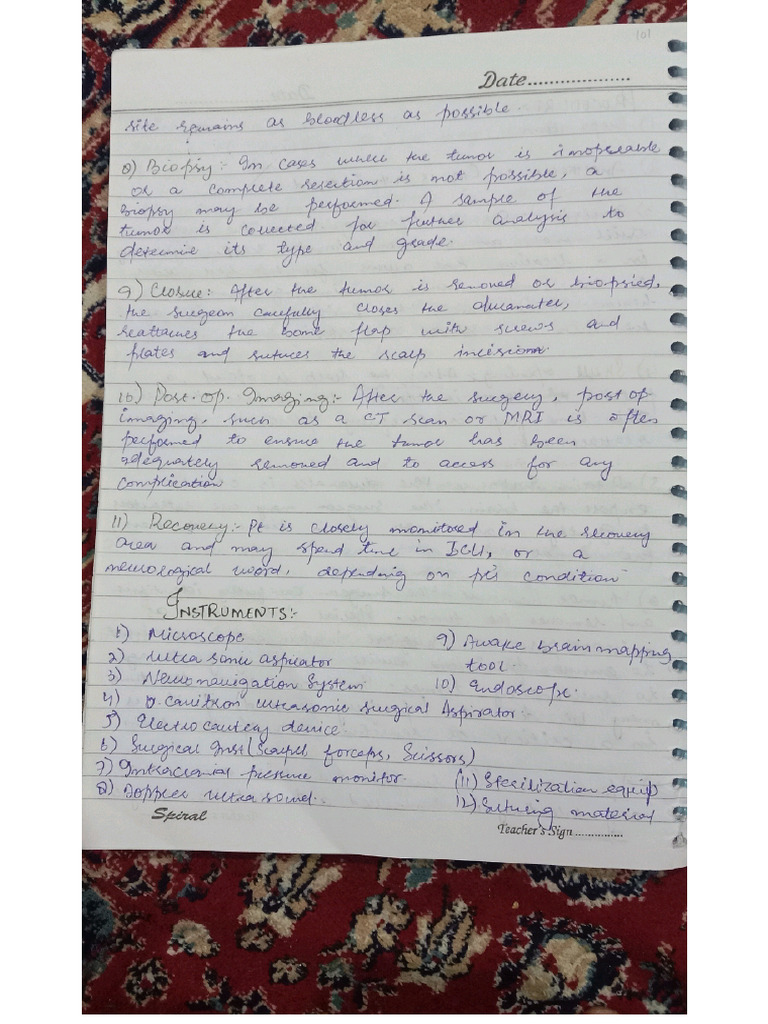 101
Date...................
site remains as bloodless as possible.
8) Biopsy:- In cases where the tumor is inoperable
or a complete resection is not possible, a
biopsy may be performed. A sample of the
tumor is collected for further analysis to
determine its type and grade.
9) Closure: After the tumor is removed or biopsied,
the surgeon carefully closes the duramater,
reattaches the bone flap with screws and
plates and sutures the scalp incision.
10) Post. op. Imaging:- After the surgery, post op
imaging, such as a CT scan or MRI is often
performed to ensure the tumor has been
adequately removed and to access for any
complication
11) Recovery:- Pt is closely monitored in the recovery
area and may spend time in ICU, or a
neurological word, depending on pt's condition
INSTRUMENTS:-
1) Microscope
2) ultra sonic aspirator
3) Neuronavigation System
4) cavitron ultrasonic surgical Aspirator
5) Electrocautery device
6) Surgical Inst (scalpel forceps, Scissors)
7) Intracranial pressure monitor.
8) Doppler ultra sound.
9) Awake brain mapping
tool.
10) Endoscope.
(11) Sterilization equip
12) Suturing material
Spiral
Teacher's Sign...............